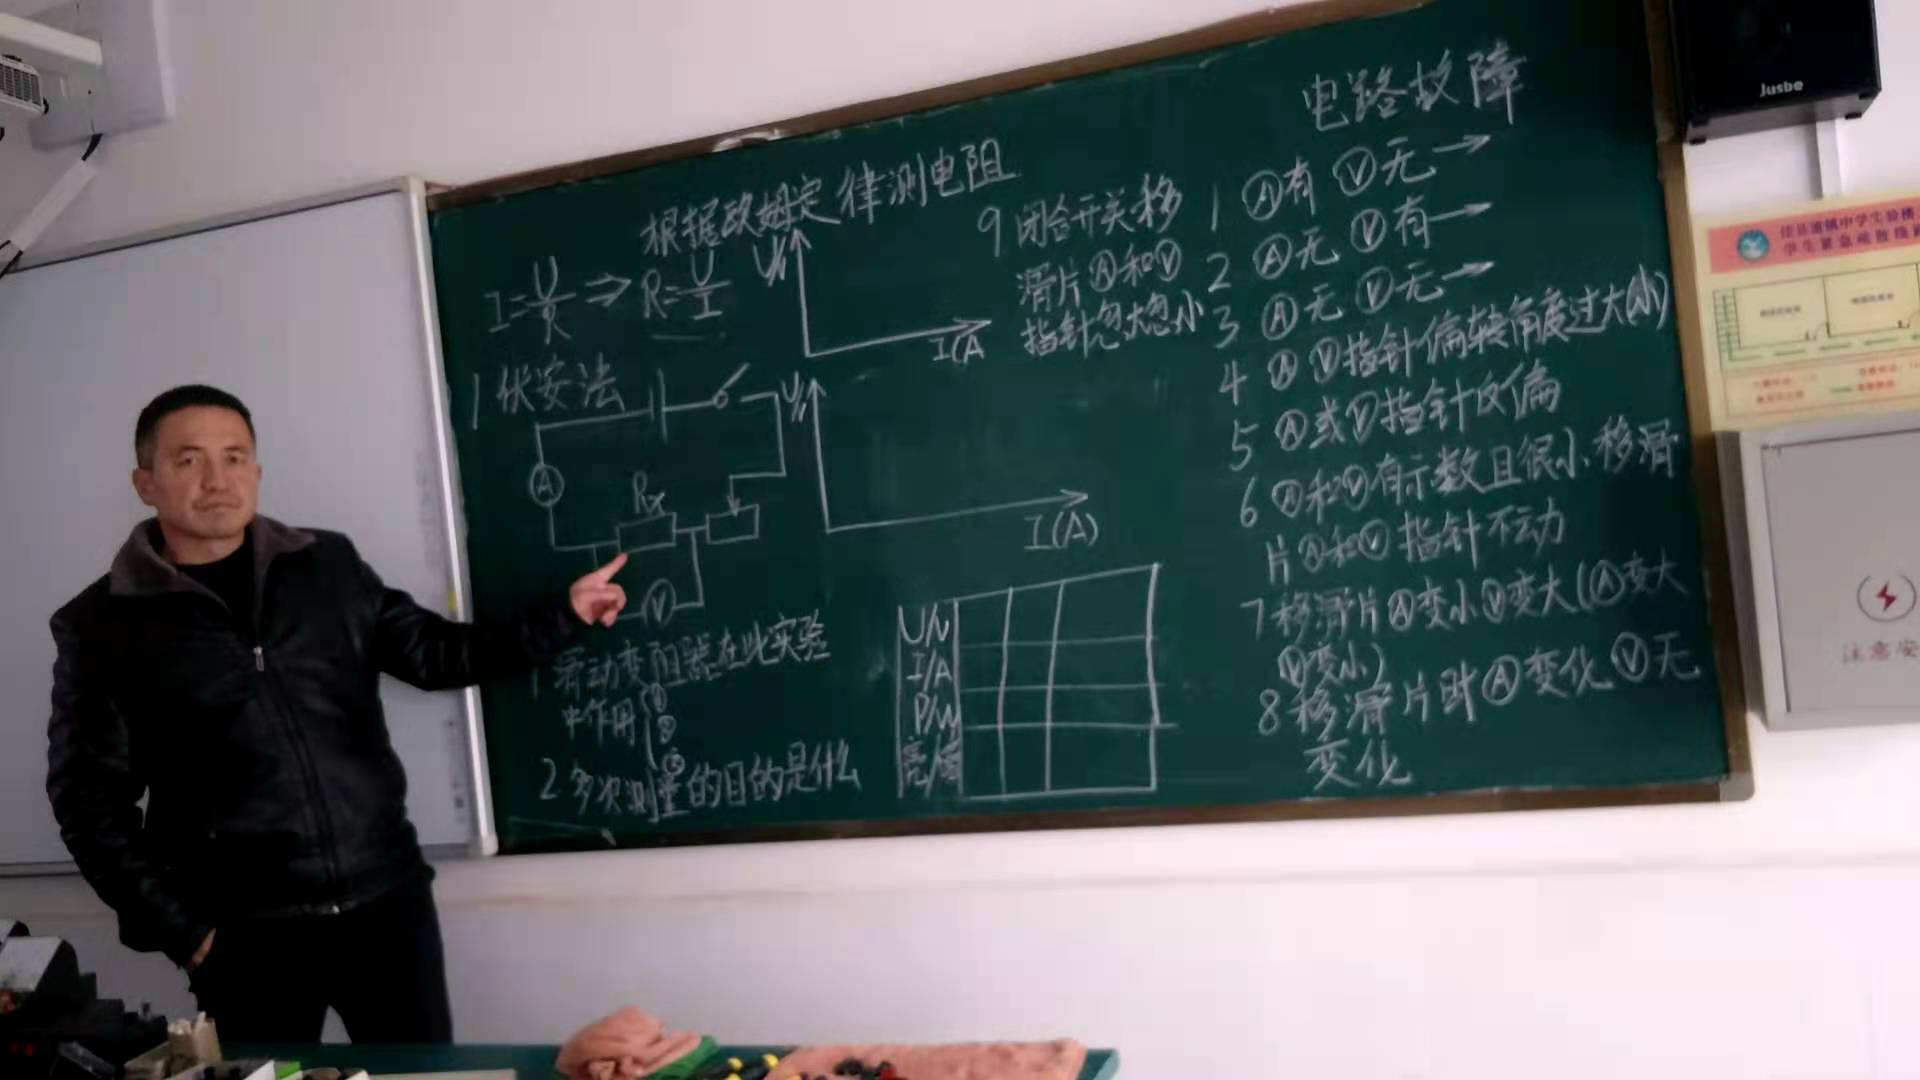 根据欧姆定律测电阻
I=U/R ⇒ R=U/I
1 伏安法
A
Rx
V
1 滑动变阻器在此实验
中作用
①
②
③
2. 多次测量的目的是什么
U/
I(A
U/
I(A)
U/V
I/A
P/W
亮/暗
9 闭合开关移
滑片Ⓐ和Ⓥ
指针忽大忽小
电路故障
1 Ⓐ有 Ⓥ无→
2 Ⓐ无 Ⓥ有→
3 Ⓐ无 Ⓥ无→
4 Ⓐ Ⓥ指针偏转角度过大(小)
5 Ⓐ或Ⓥ指针反偏
6 Ⓐ和Ⓥ有示数且很小移滑
片Ⓐ和Ⓥ指针不动
7 移滑片Ⓐ变小Ⓥ变大(Ⓐ变大
Ⓥ变小)
8 移滑片时Ⓐ变化Ⓥ无
变化
Jusbe
中学实验楼
学生紧急疏散线路
注意安